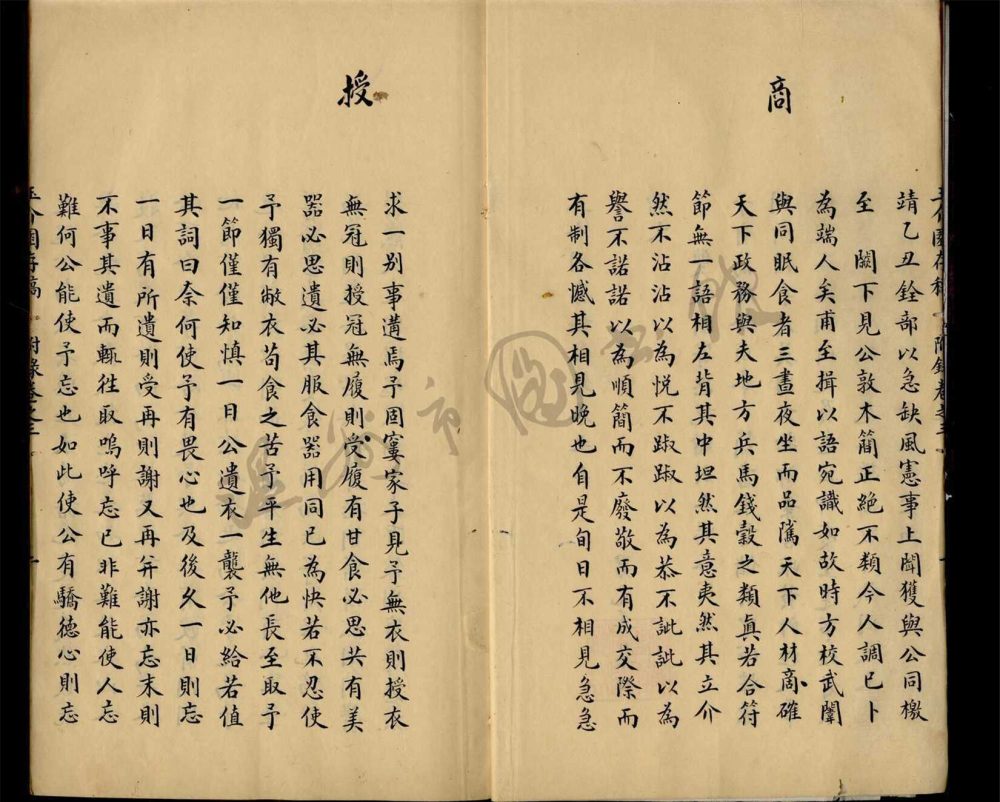 商
玉介園存稿 附錄卷之三
靖乙丑銓部以急缺風憲事上聞獲與公同檄
至 闕下見公敦木簡正絕不類今人調已卜
為端人矣甫至揖以語宛識如故時方校武闈
與同眠食者三晝夜坐而品隲天下人材商確
天下政務與夫地方兵馬錢穀之類真若合符
節無一語相左背其中坦然其意夷然其立介
然不沾沾以為悅不踧踧以為恭不訿訿以為
譽不諾諾以為順簡而不廢敬而有成交際而
有制各憾其相見晚也自是旬日不相見急急
授
求一別事遘焉予固窶家子見予無衣則授衣
無冠則授冠無履則受履有甘食必思共有美
器必思遺必其服食器用同已為快若不忍使
予獨有敝衣苟食之苦予平生無他長至取予
一節僅僅知慎一日公遺衣一襲予必給若值
其詞曰奈何使予有畏心也及後久一日則忘
一日有所遺則受再則謝又再并謝亦忘末則
不事其遺而輒徃取嗚呼忘已非難能使人忘
難何公能使予忘也如此使公有驕德心則忘
玉介園存稿 附錄卷之三
温州市图书馆